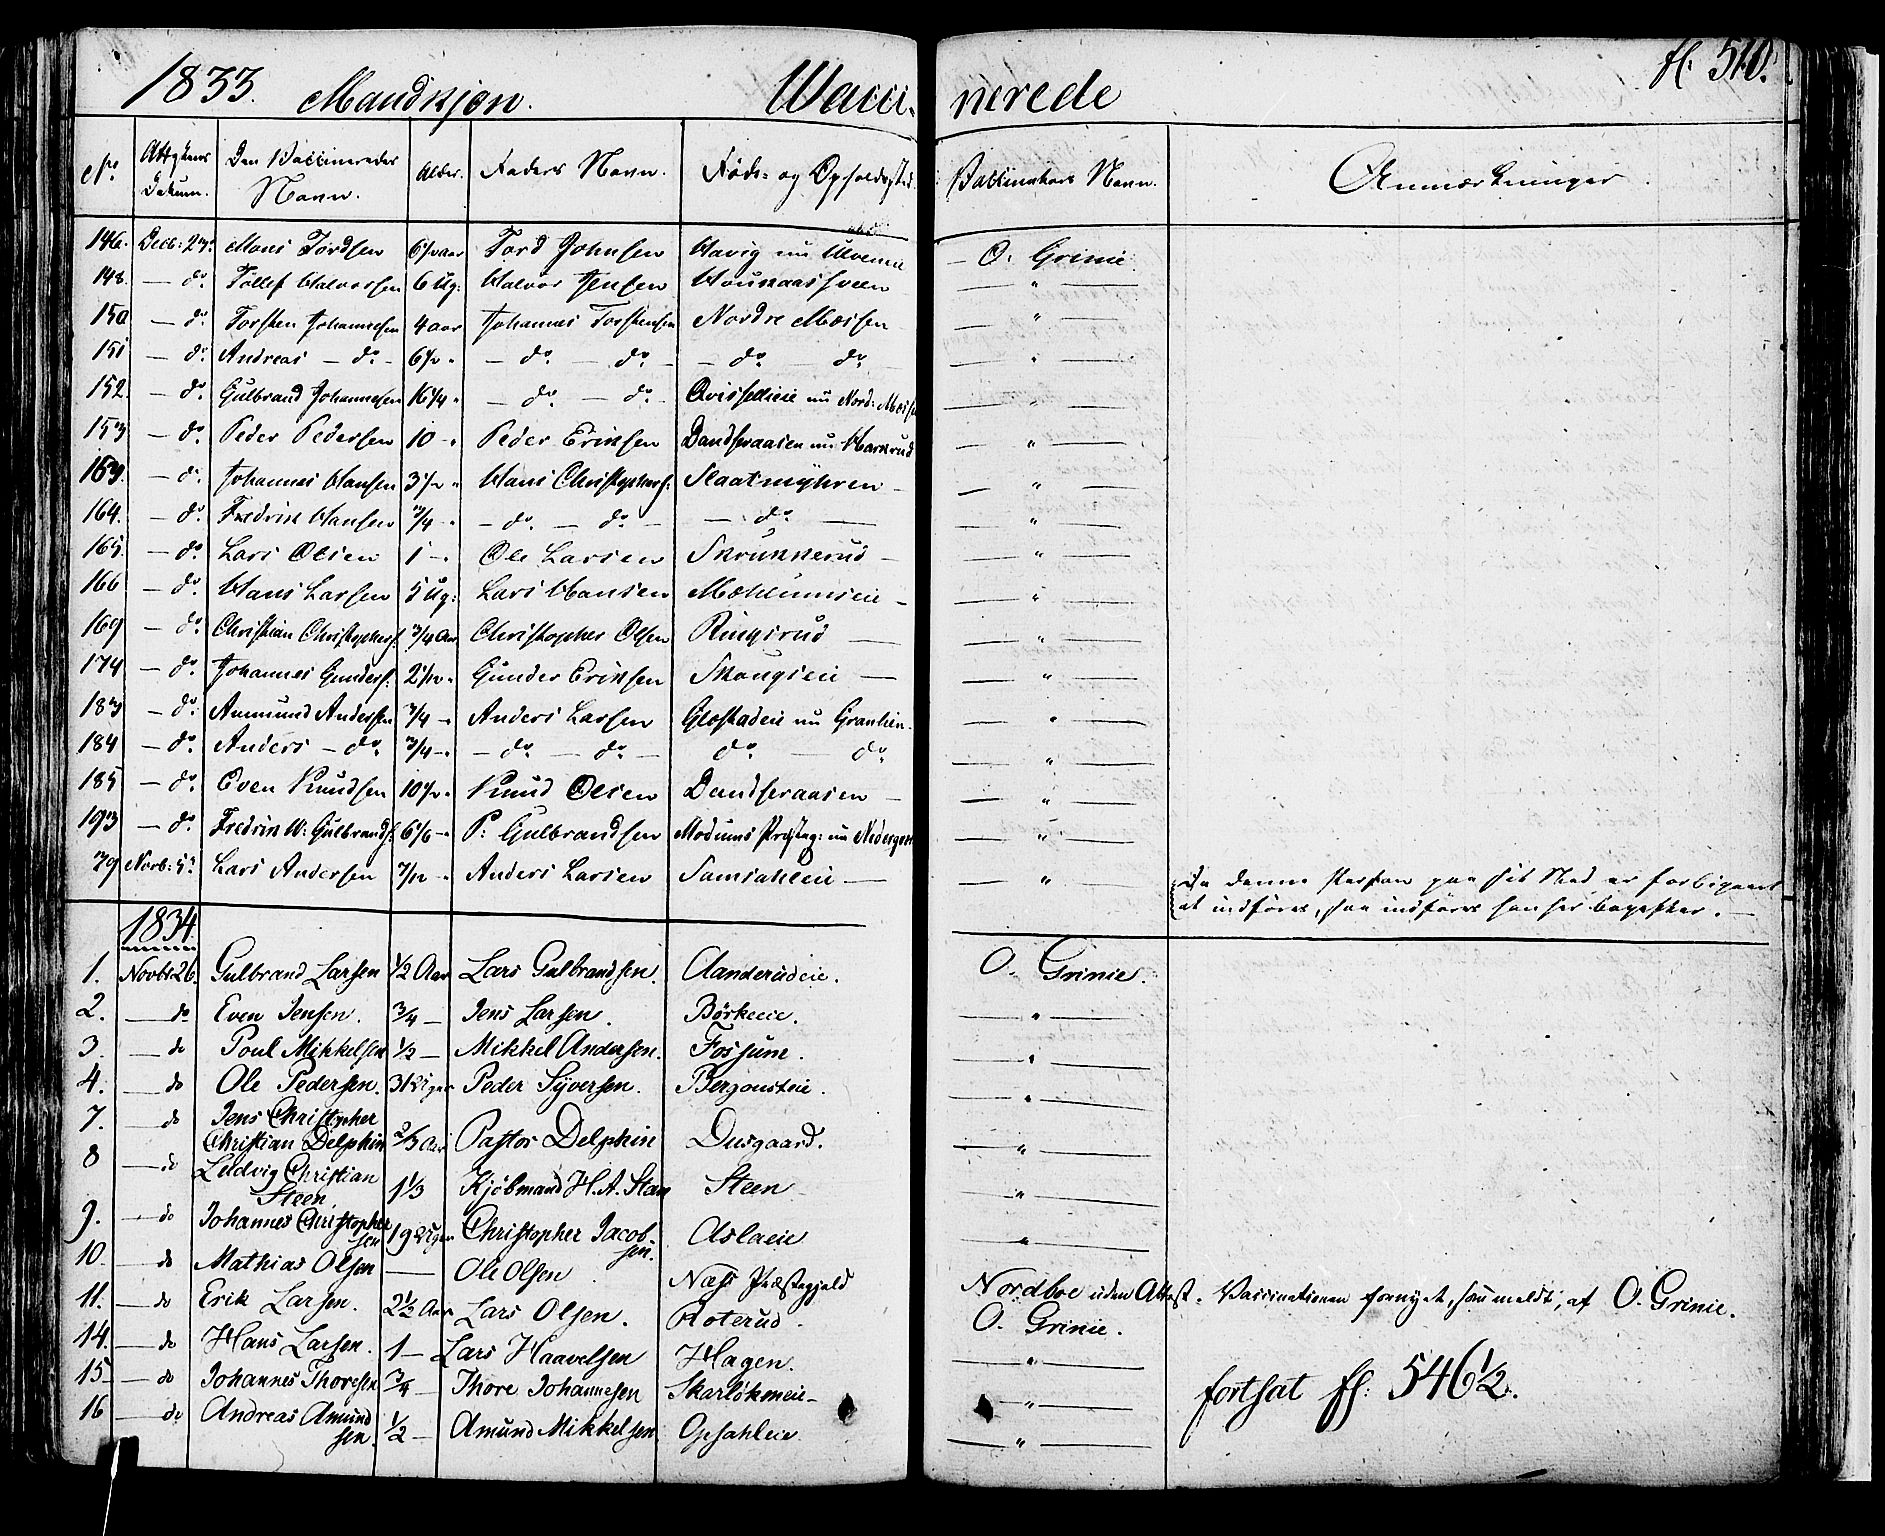 1833. Mandkjøn. Wacci- nerede fl. 510.
No Attestens Datum. Den Vaccineredes Navn. Alder. Faders Navn. Føde- og Opholdssted. Vaccinateurs Navn. Anmærkninger.
146. Decb: 27. Mons Tordsen 6½ aar Tord Johnsen Havig nu Ulvenie — O. Grinie.
148. — do. Tollef Halvorsen 6 Ug: Halvor Jensen — " —
150 — do. Torsten Johannesen 4 aar Johannes Torstensen Nordre Moesen — " —
151 — do. Andreas — do — 6½ " — do. — do. — — do. do. — — " —
152. — do. Gulbrand Johannesen 16¼ " — do. — do. — nu Nord: Moesen — " —
153 — do. Peder Pedersen 10 — " Peder Eriksen nu Harkrud — " —
163. — do. Johannes Hansen 3½ " Hans Christophers: Slaatmyhren — — " —
164. — do. Fredrik Hansen ¾ — " — do. — do. — — do. — — " —
165. — do. Lars Olsen 1 — " Ole Larsen Skrukkerud — — " —
166 — do. Hans Larsen 5 Ug: Lars Hansen Mæhlumseie — — " —
169 — do. Christian Christophers: ¾ Aar Christopher Olsen Ringsrud — — " —
174 — do. Johannes Gunders: 2½ " Gunder Eriksen Skougseie — — " —
183 — do. Anmund Andersen ¾ — " Anders Larsen nu Granlien. — " —
184 — do. Anders — do. ¾ — " — do. — do. — do. — do. — " —
185 — do. Even Knudsen 10½ " Knud Olsen — " —
193 — do. Fredrik W: Gulbrands: 6⅙ — " P: Gulbrandsen Modums Præsteg: nu — " —
79 Novb: 5. Lars Andersen 7/12 — " Anders Larsen Samsahleie — — " — Da denne Person paa sit Sted er forbigaaet
at indføres, saa indføres han her bagefter. —
1834.
1. Novbr 26. Gulbrand Larsen ½ Aar Lars Gulbrandsen. Aanderudeie. O. Grinie.
2. — do Even Jensen. ¾ — Jens Larsen. Børkeeie. — " —
3. — do Poul Mikkelsen ½ — Mikkel Andersen. Fossum. — " —
4. — do Ole Pedersen. 3 Uger Peder Syversen. Bergansteie. — " —
7. — do Jens Christopher
Christian Delphin ⅔ Aar Pastor Delphin Dusgaard. — " —
8 — do Ludvig Christian
Steen 1⅓ Kjøbmand H. A. Steen Steen — " —
9. — do Johannes Christopher
sen 19 Uger Christopher Jacob-
sen. Aslaeie — " —
10. — do Mathias Olsen — Ole Olsen. Næss Præstegjeld Nordboe uden Attest. Vaccinationen fornyet, som meldt, af O. Grinie.
11. — do Erik Larsen. 2½ Aar Lars Olsen. Roterud. O. Grinie.
14. — do Hans Larsen. 1 — Lars Haavelsen Hagen. — " —
15 — do Johannes Thoresen ¾ — Thore Johannesen Skarløkeneie — — " —
16 — do Andreas Amund
sen. ½ — Amund Mikkelsen Opsahleie — " —
fortsat fl: 546½.